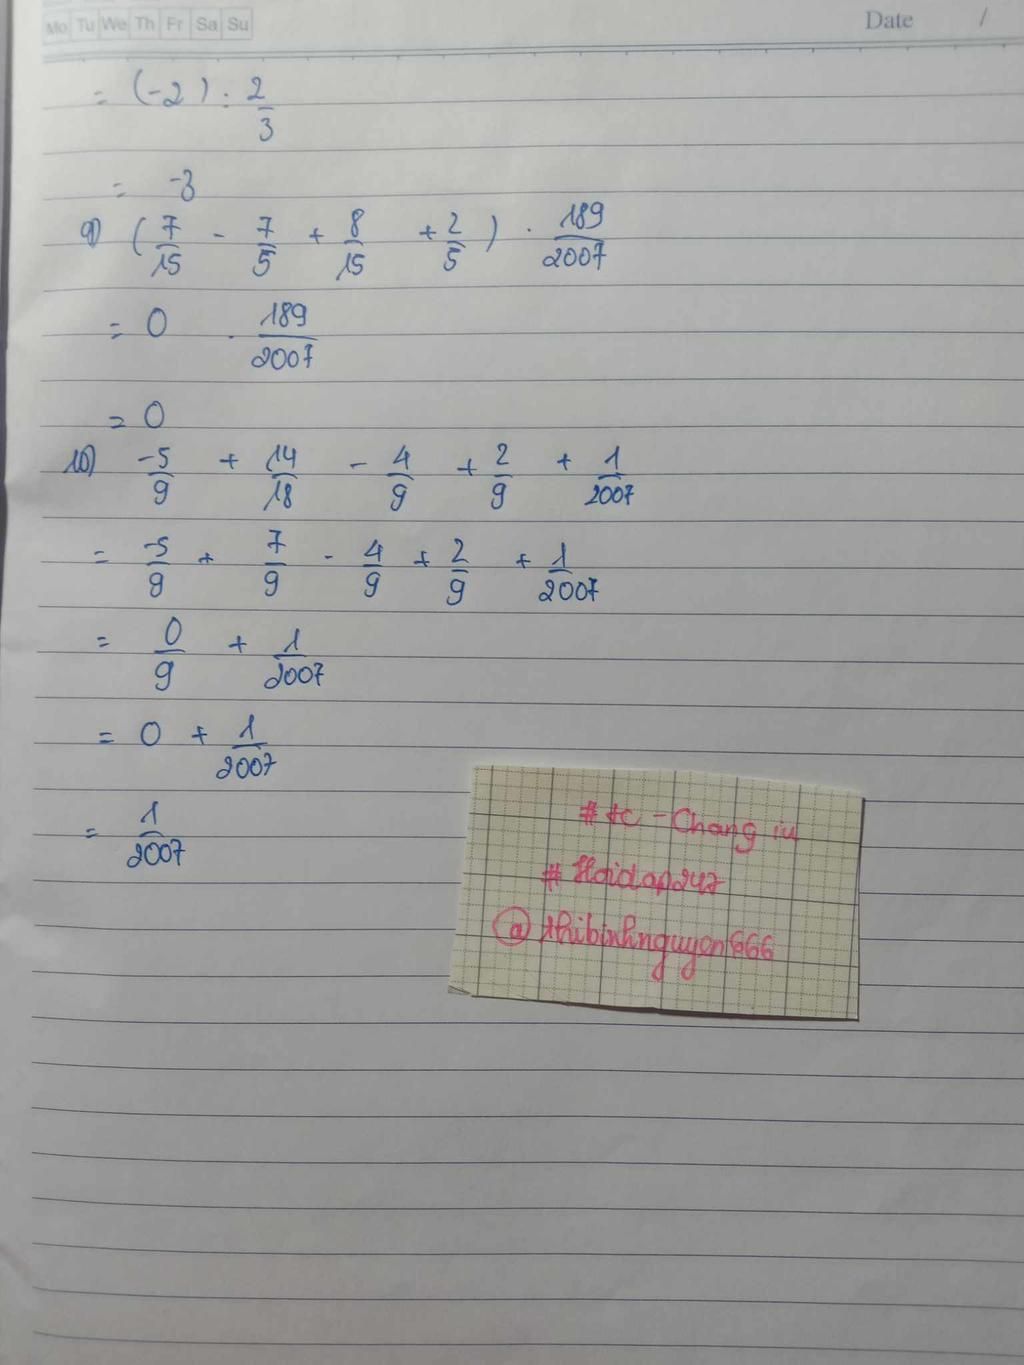 Mo Tu We Th Fr Sa Su
Date /
= (-2) : 2/3
= -3
9) (7/15 - 7/5 + 8/15 + 2/5) . 189/2007
= 0 . 189/2007
= 0
10) -5/9 + 14/18 - 4/9 + 2/9 + 1/2007
= -5/9 + 7/9 - 4/9 + 2/9 + 1/2007
= 0/9 + 1/2007
= 0 + 1/2007
= 1/2007
# tc - Chang iu
# Hoidap247
@ thibinhnguyen666